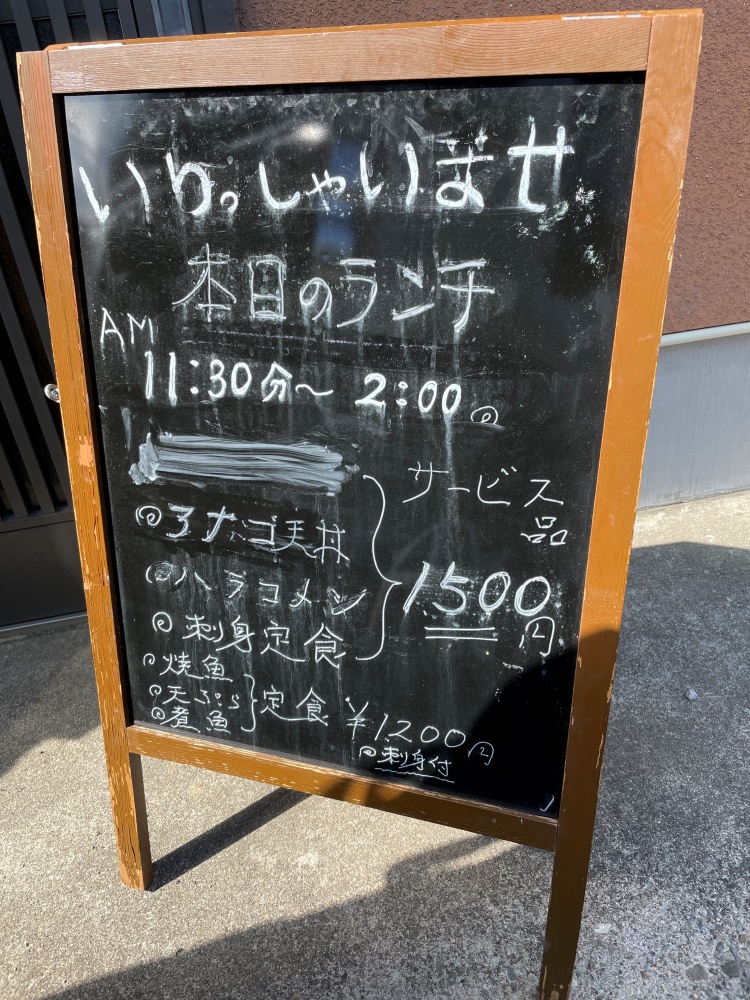 いらっしゃいませ
本日のランチ
AM
11:30分～2:00
サービス品
アナゴ天丼
ハラコメシ
刺身定食
1500円
焼魚
天ぷら
煮魚
定食 ¥1200円
刺身付